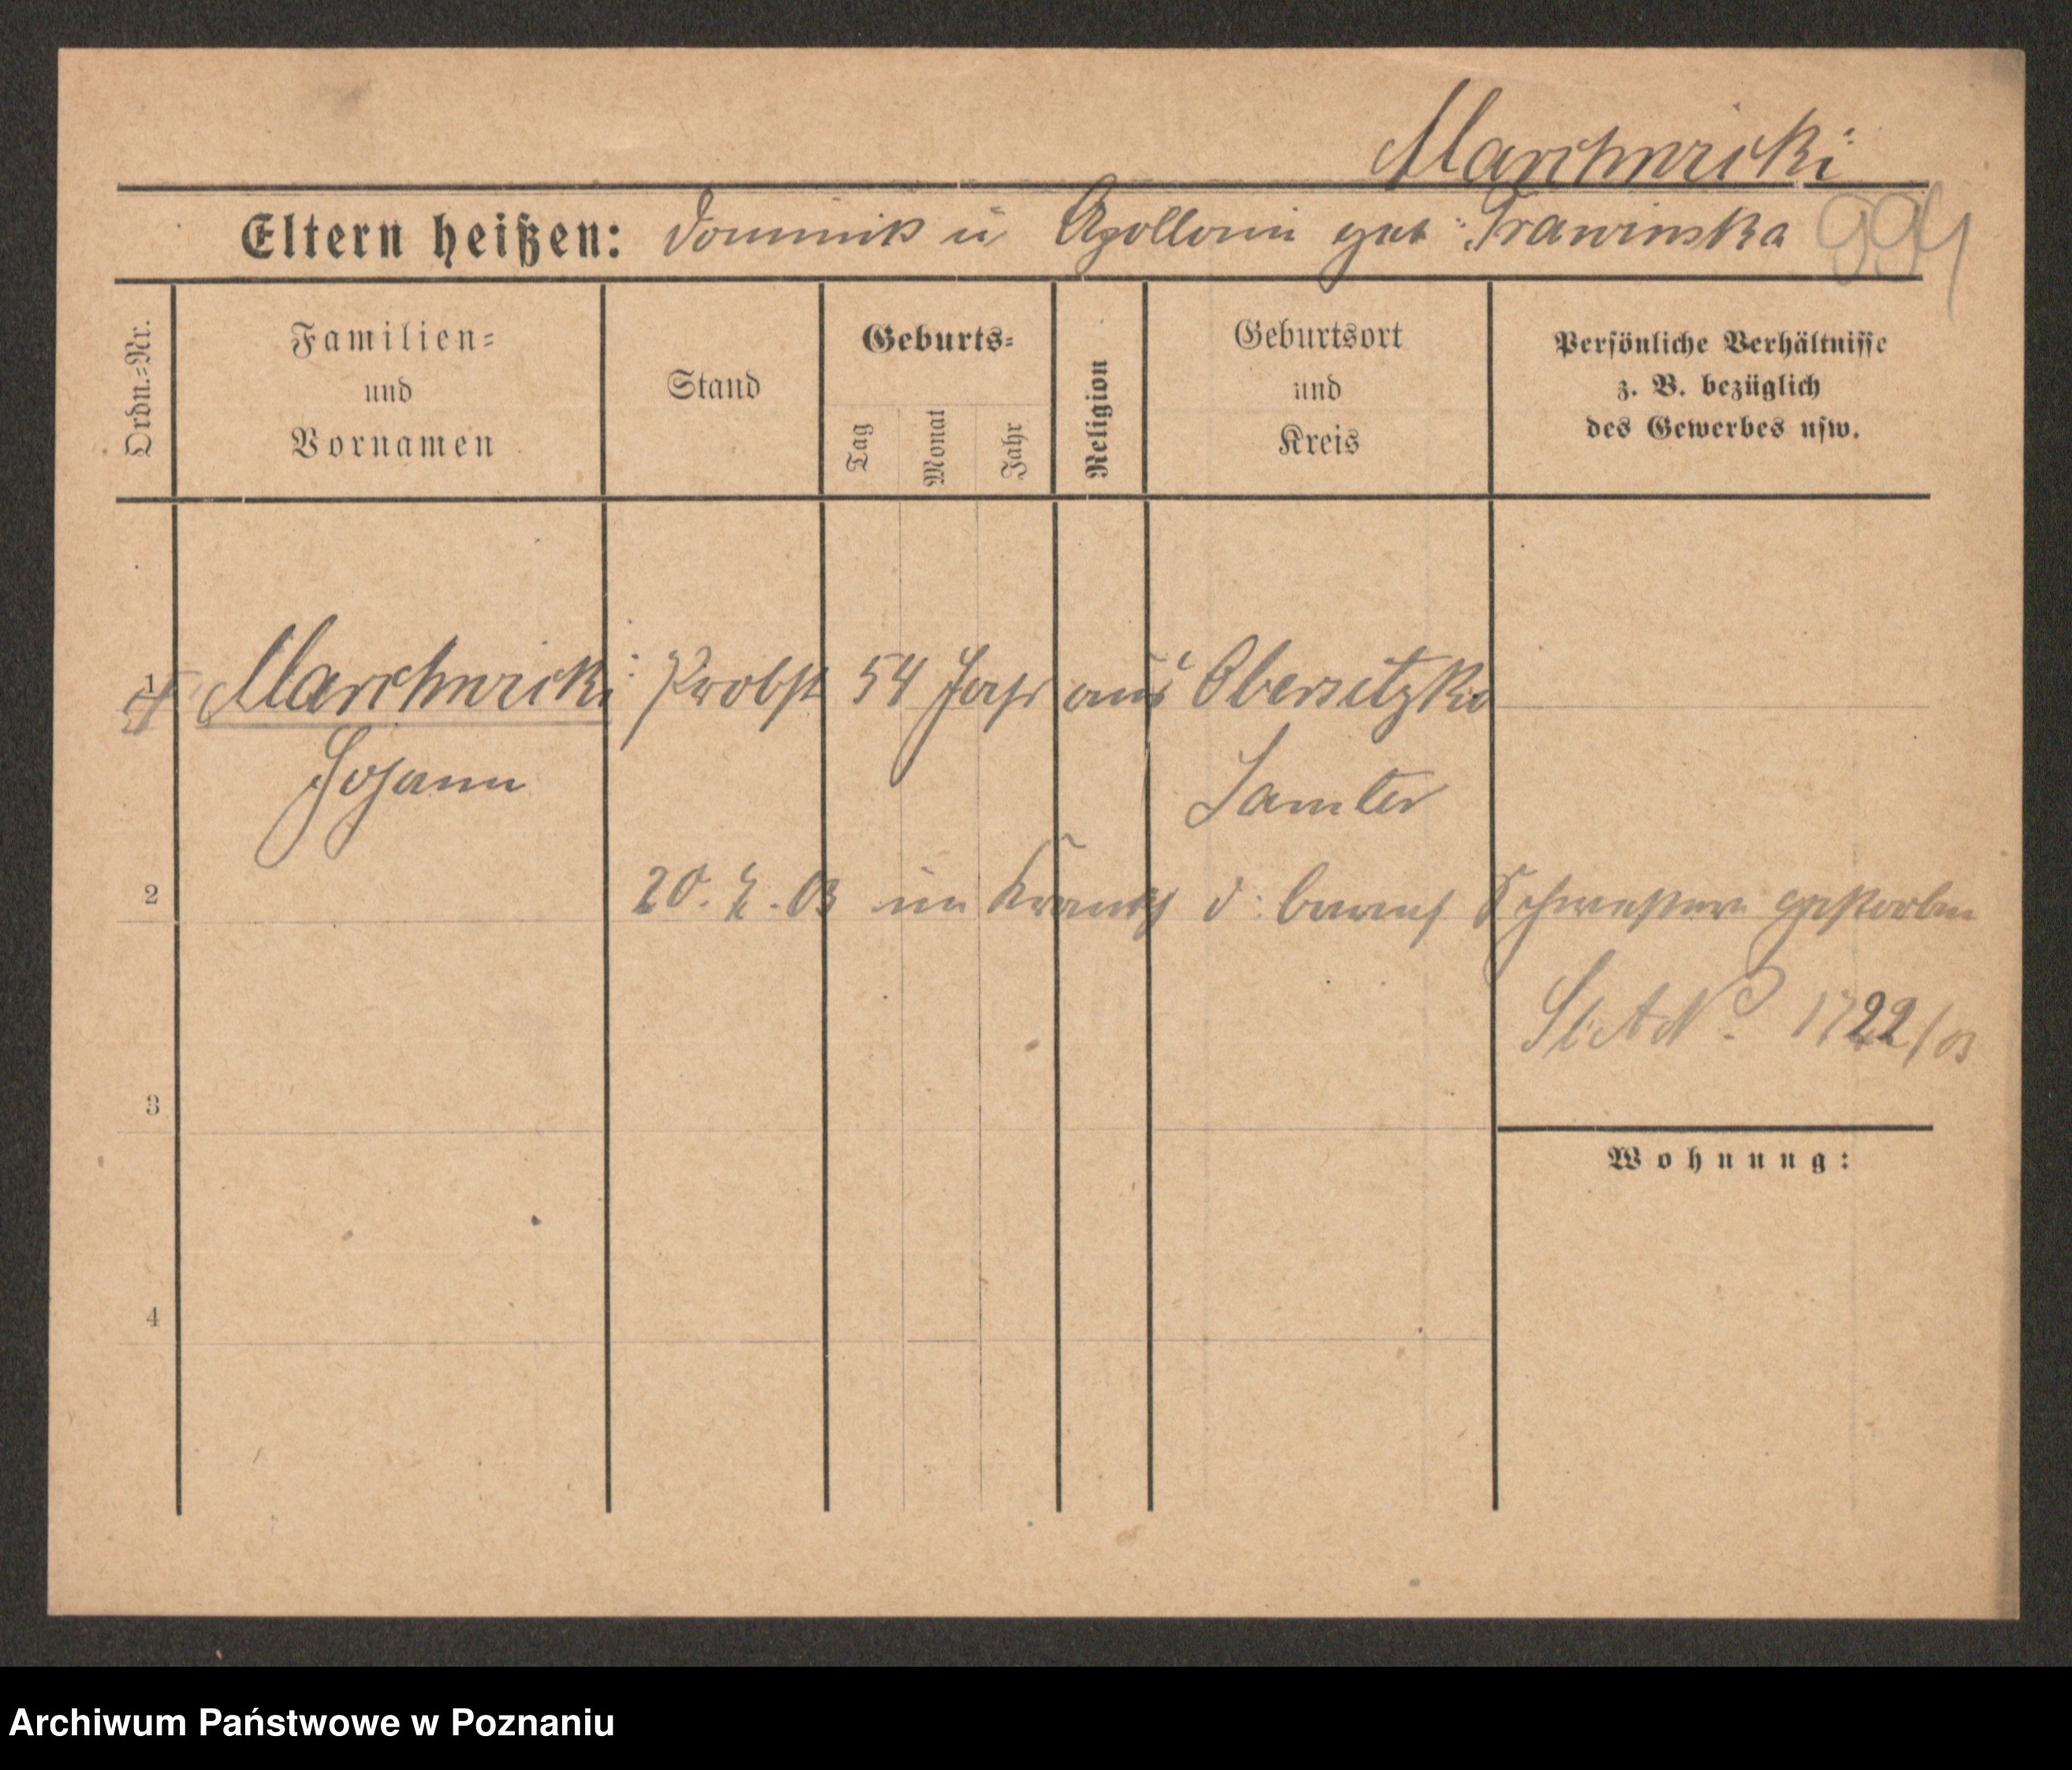 Marchwicki
Eltern heißen: Dominik u Apollonia geb. Trawinska 994
Ordn.=Nr.
Familien=
und
Vornamen
Stand
Geburts=
Tag
Monat
Jahr
Religion
Geburtsort
und
Kreis
Persönliche Verhältnisse
z. B. bezüglich
des Gewerbes usw.
1 Marchwicki Probst 54 Jahr aus Obersitzko
Johann Samter
2 20. 03 im Krankh d. barmh Schwestern gestorben
St. A. N. 1722/03
3
Wohnung:
4
Archiwum Państwowe w Poznaniu